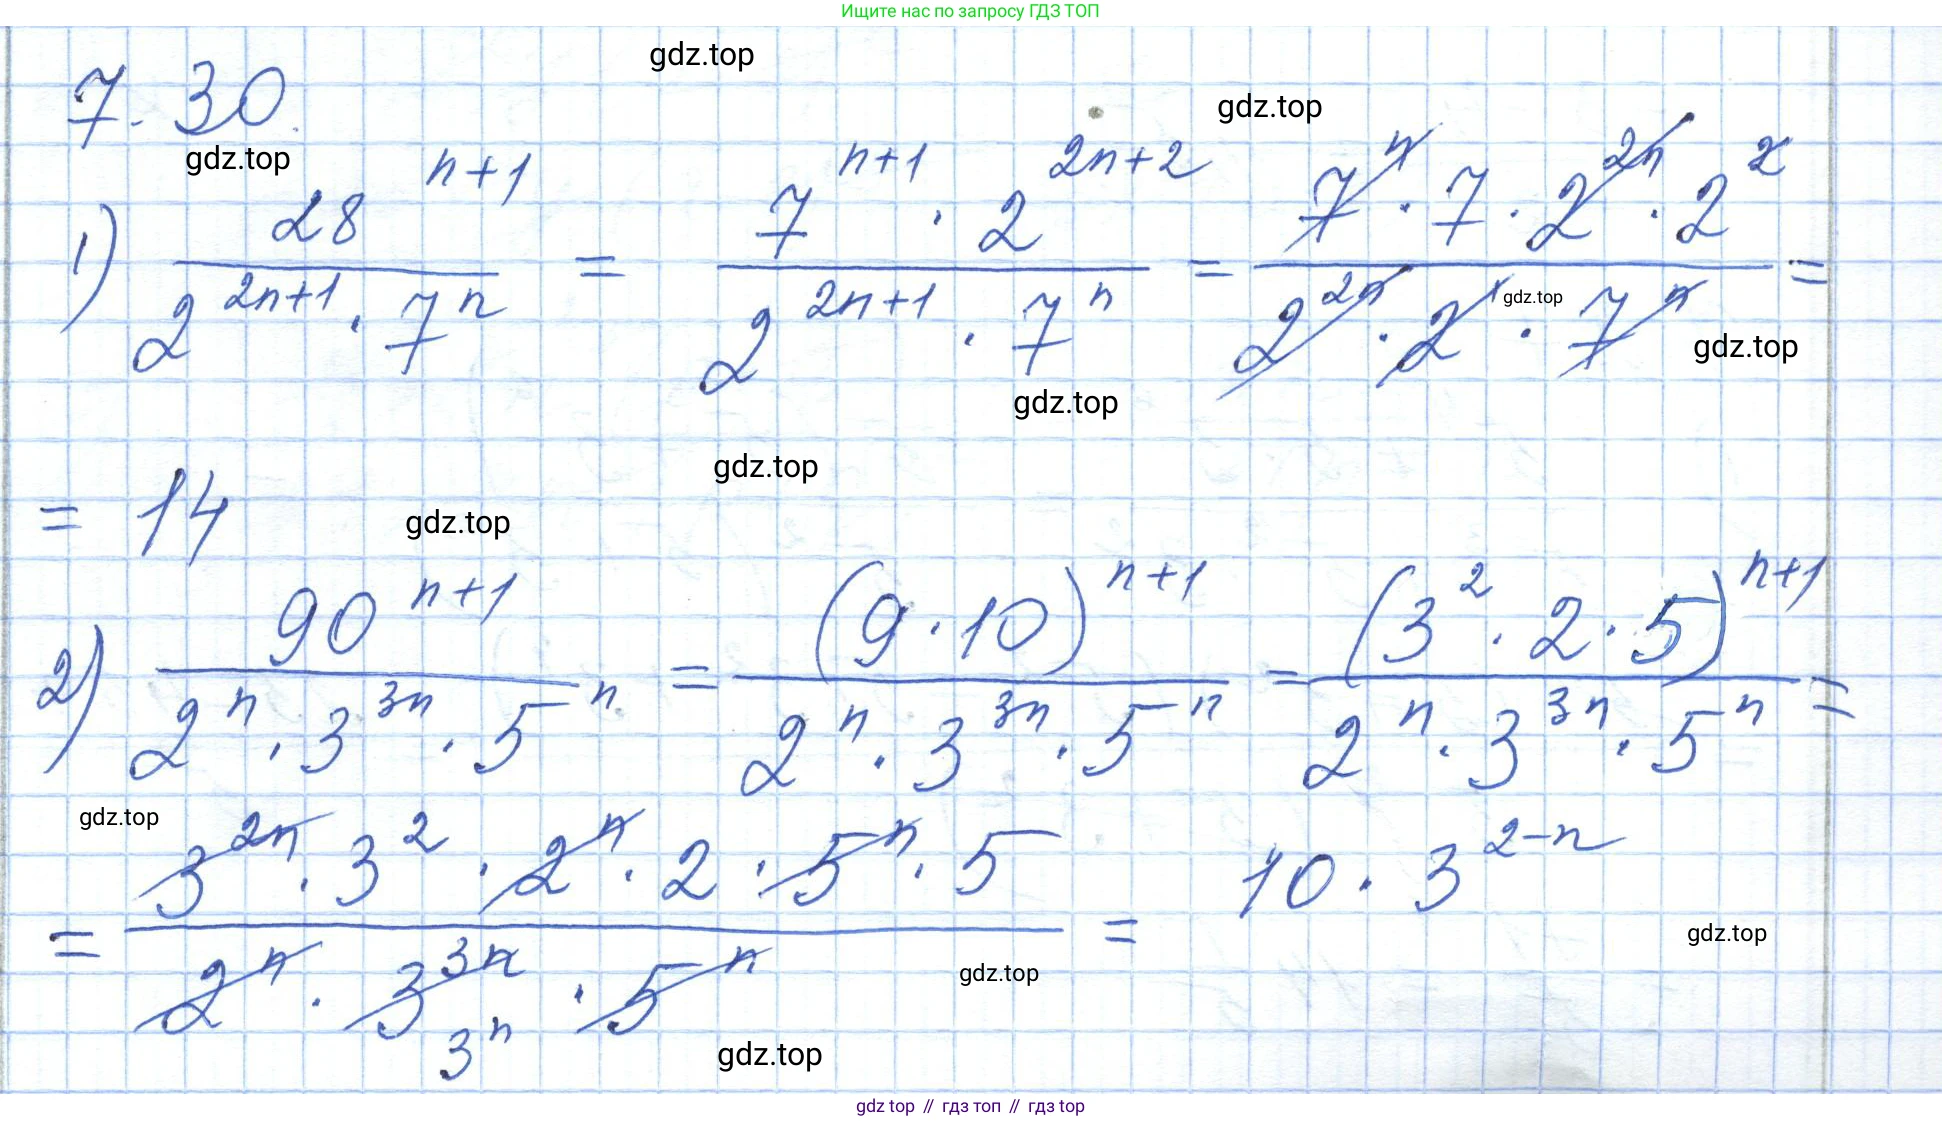 Ищите нас по запросу ГДЗ ТОП
gdz.top
7.30.
gdz.top
gdz.top
1) 28^(n+1) / (2^(2n+1) · 7^n) = 7^(n+1) · 2^(2n+2) / (2^(2n+1) · 7^n) = 7^n · 7 · 2^(2n) · 2^2 / (2^(2n) · 2^1 · 7^n) =
gdz.top
gdz.top
gdz.top
gdz.top
= 14
gdz.top
2) 90^(n+1) / (2^n · 3^(3n) · 5^n) = (9 · 10)^(n+1) / (2^n · 3^(3n) · 5^n) = (3^2 · 2 · 5)^(n+1) / (2^n · 3^(3n) · 5^n) =
gdz.top
= 3^(2n) · 3^2 · 2^n · 2 · 5^n · 5 / (2^n · 3^(3n) · 5^n) = 10 · 3^(2-n)
gdz.top
gdz.top
3^n
gdz.top
gdz top // гдз топ // гдз top